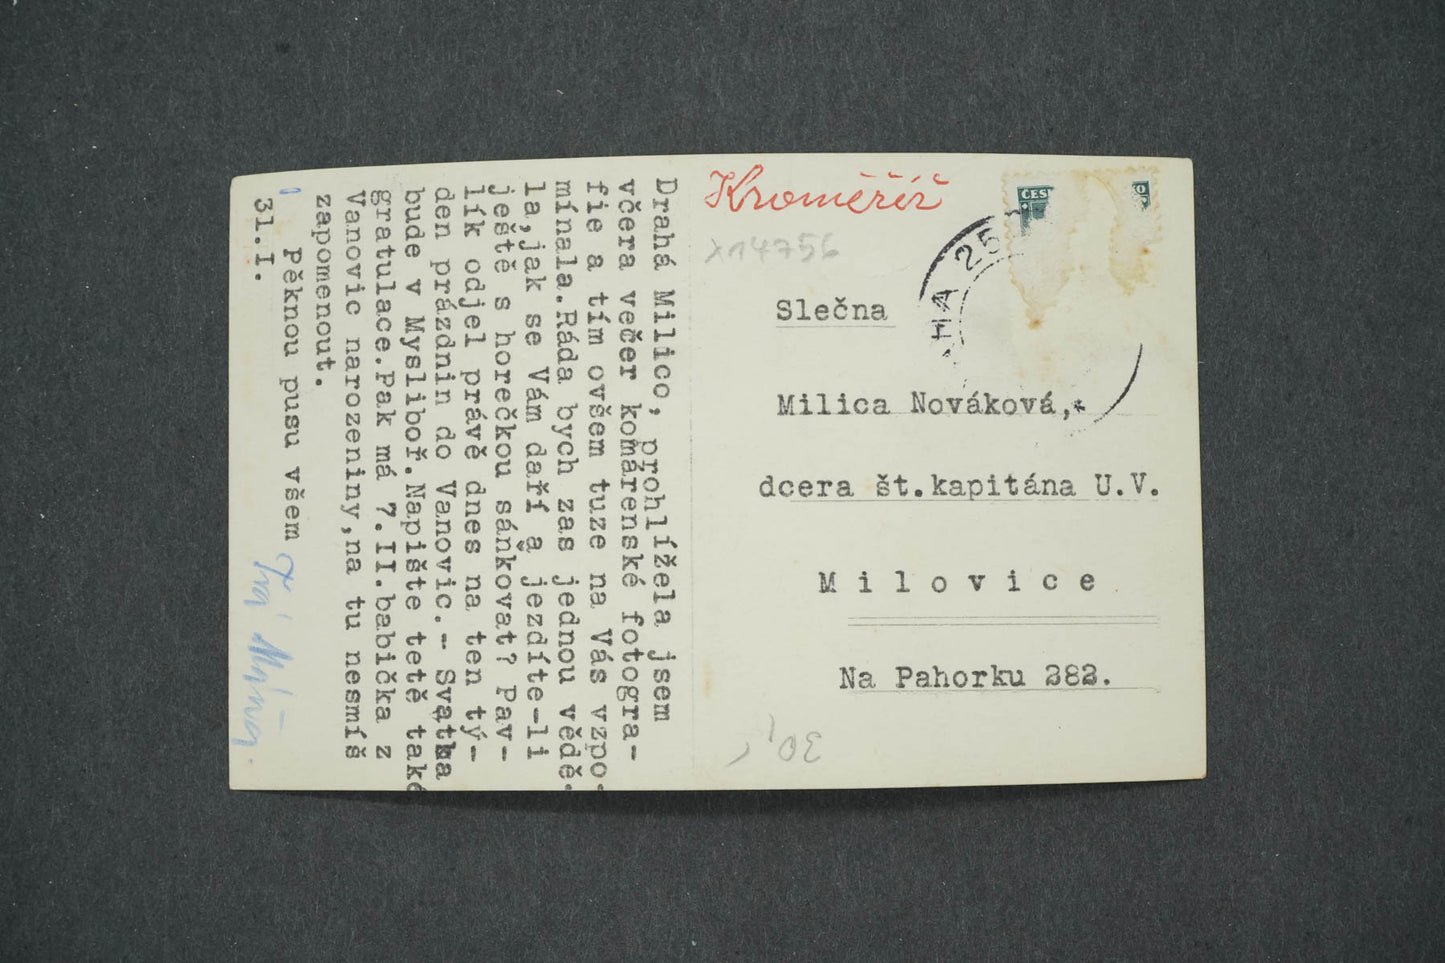 Drahá Milico, prohlížela jsem
včera večer komárenské fotogra-
fie a tím ovšem tuze na Vás vzpo-
mínala.Ráda bych zas jednou vědě-
la,jak se Vám daří a jezdíte-li
ještě s horečkou sáňkovat? Pav-
lík odjel právě dnes na ten tý-
den prázdnin do Vanovic.- Svaťka
bude v Mysliboř.Napište tetě také
gratulace.Pak má 7.II.babička z
Vanovic narozeniny,na tu nesmíš
zapomenout.
Pěknou pusu všem
31.I.
Tvá Márina
Kroměříž
x14756
ČES
O
HA 25
Slečna
Milica Nováková,
dcera št.kapitána U.V.
Milovice
Na Pahorku 282.
30,-